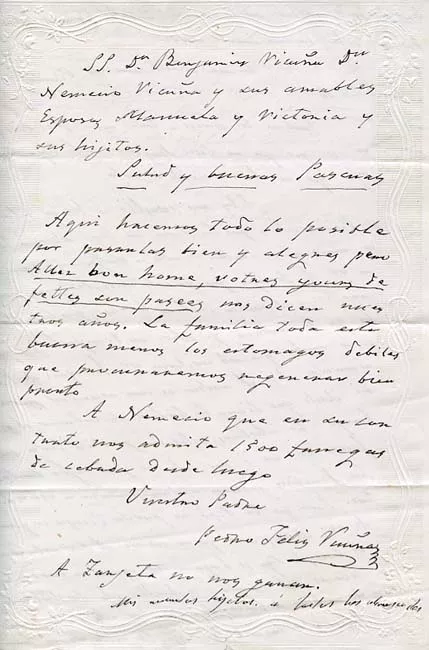 SS. Dn Benjamin Vicuña Dn
Nemecio Vicuña y sus amables
Esposas Manuela y Victonia y
sus hijitos.
Salud y buenas Pascuas
Aqui hacemos todo lo posible
por pasarlas bien y alegres pero
Allez bon home, votres yours de
fettes son pasees nos dicen nues
tros años. La familia toda esta
buena menos los estomagos debiles
que procuraremos regenerar bien
pronto
A Nemecio que en su con
tunto nos admita 1500 fanegas
de cebada desde luego
Vuestro Padre
Pedro Felix Vicuña
A Zanjeta no nos ganan.
Mis hijitos. á todos los